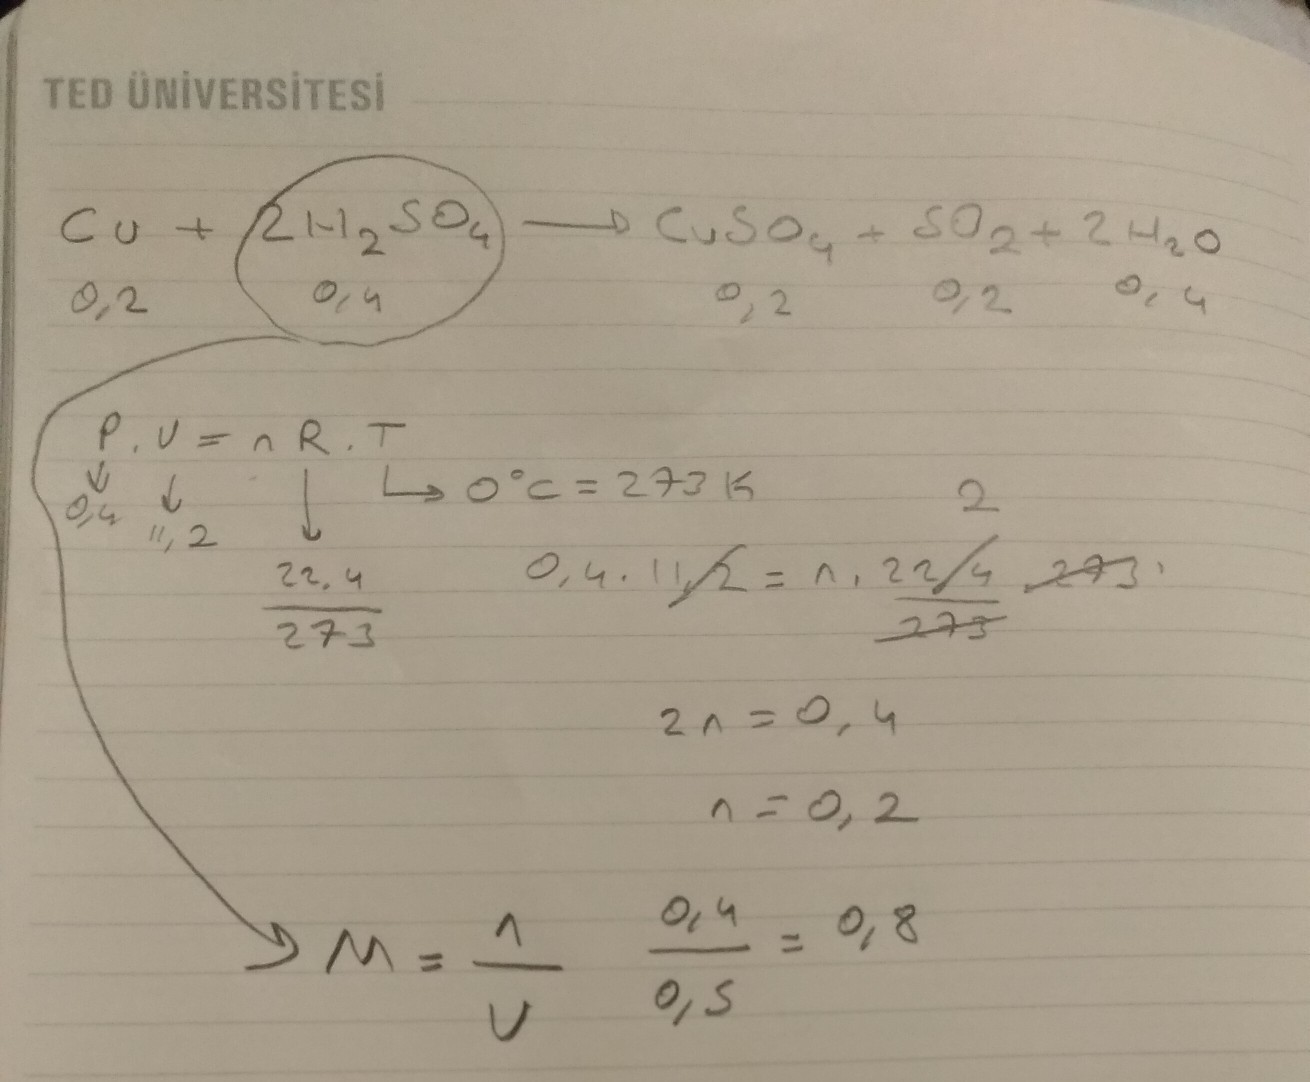 TED ÜNİVERSİTESİ
Cu + 2H₂SO₄ → CuSO₄ + SO₂ + 2H₂O
0,2 0,4 0,2 0,2 0,4
P.V = n R.T
0,4 11,2 22.4/273 → 0°C = 273 K
2
0,4.11,2 = n.22,4/273 .273
2n = 0,4
n = 0,2
M = n/V 0,4/0,5 = 0,8